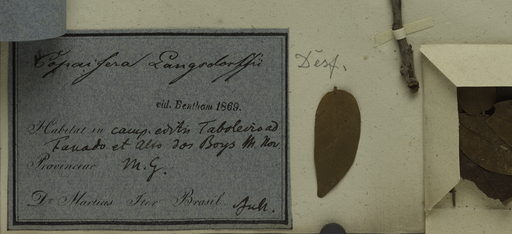 Copaifera Langsdorffii
Desf.
vid. Bentham 1869.
Habitat in camp. editis Taboleiro ad
Fanado et Alto dos Boys M. Nov.
Provinciae M.G.
Dr Martius Iter Brasil